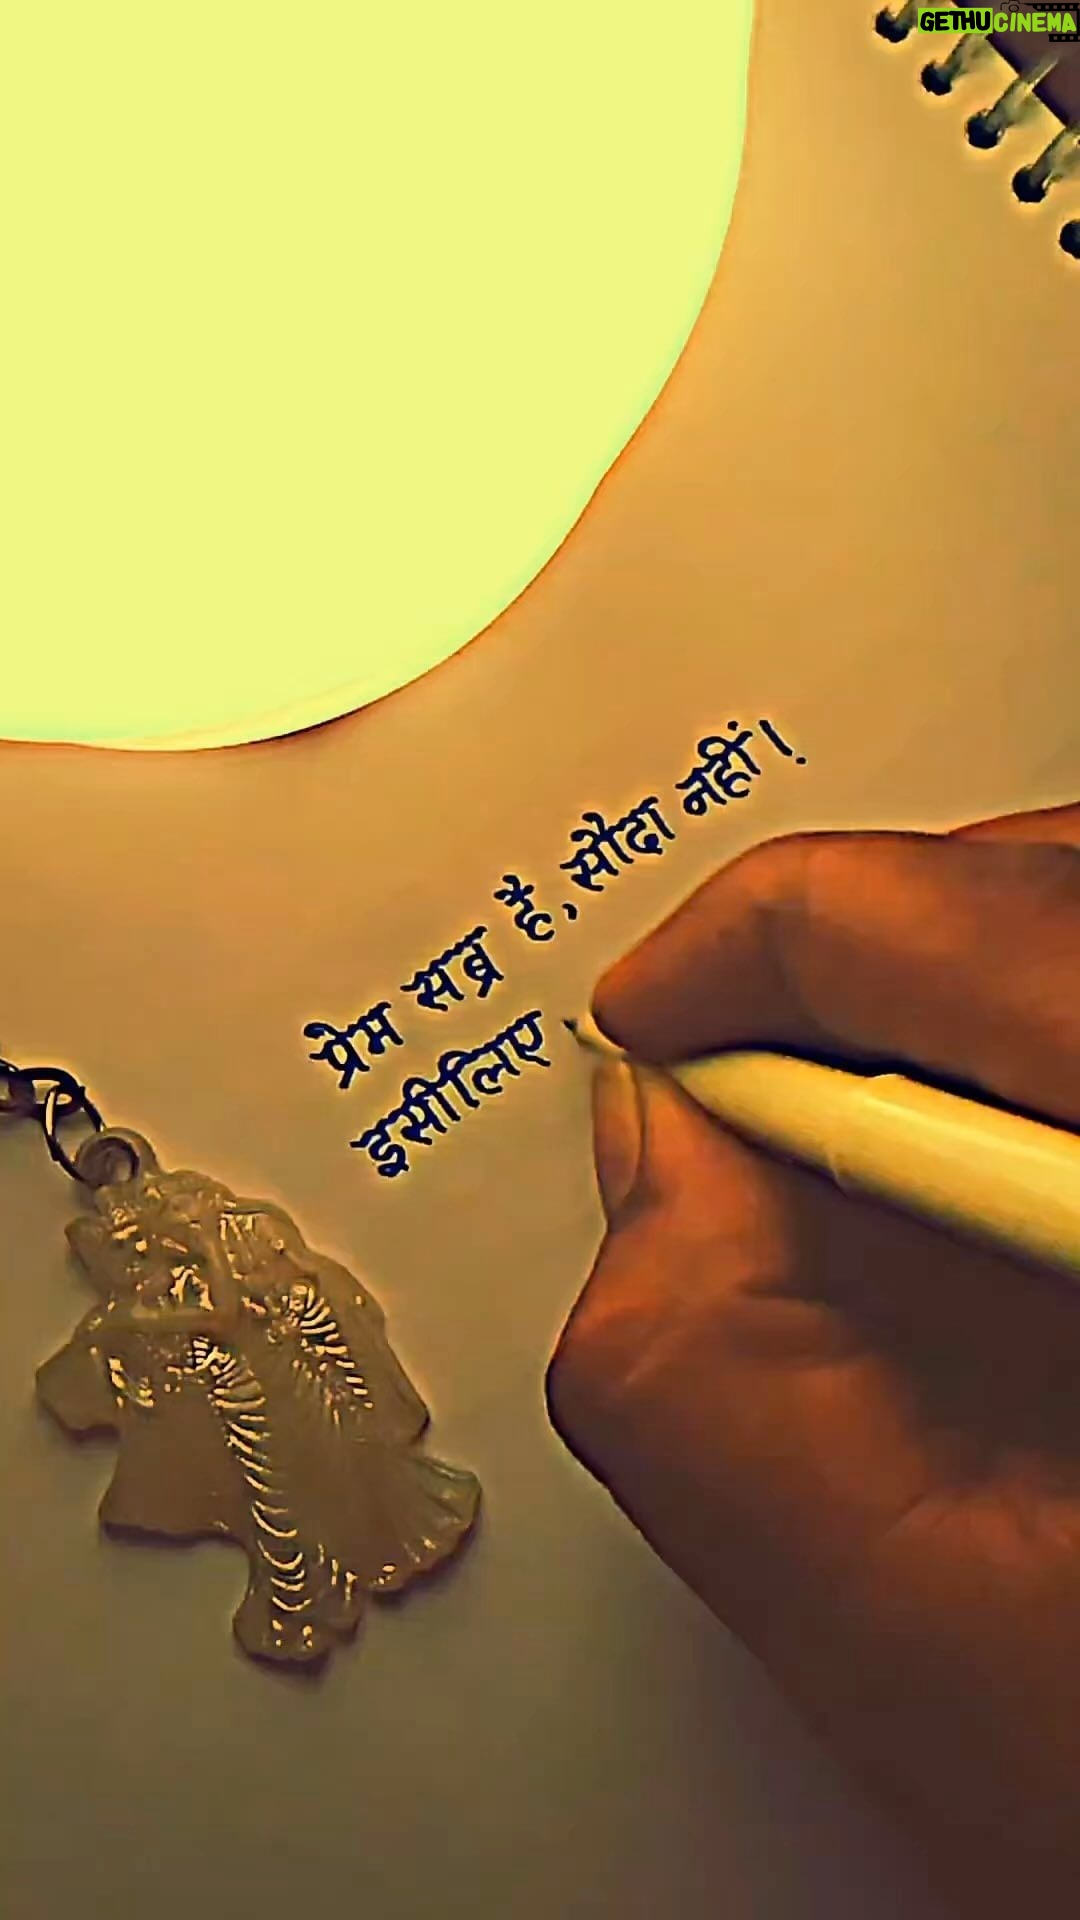 GETHUCINEMA
प्रेम सब्र है, सौदा नहीं।
इसीलिए